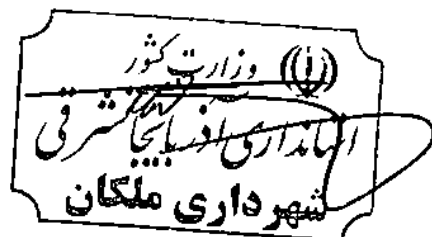 وزارت کشور
استانداری آذربایجان شرقی
شهرداری ملکان